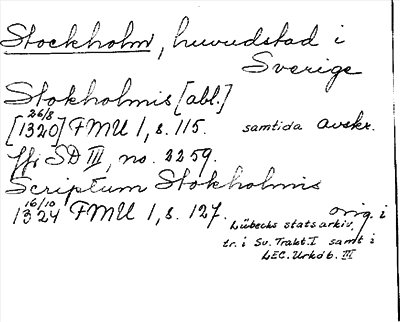 Stockholm, huvudstad i
Sverige
Stokholmis [abl.]
[1320 26/8] FMU I, s. 115. samtida avskr.
jfr SD III, no. 2259.
Scriptum Stokholmis
1324 16/10 FMU I, s. 127. orig. i
Lübecks statsarkiv,
tr. i Sv. Trakt. I samt i
LEC. Urkdb. III